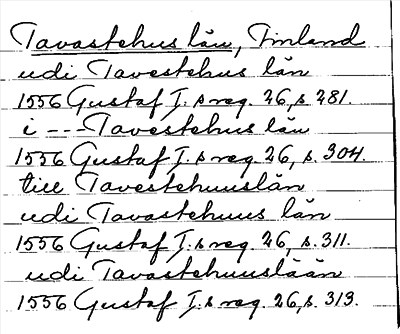 Tavastehus län, Finland
udi Tavestehus län
1556 Gustaf I. s reg. 26, s. 281.
i --- Tavastehus län
1556 Gustaf I. s reg. 26, s. 304.
till Tavestehuuslän
udi Tavastehuus län
1556 Gustaf I. s reg. 26, s. 311.
udi Tavastehuuslään
1556 Gustaf I. s reg. 26, s. 313.